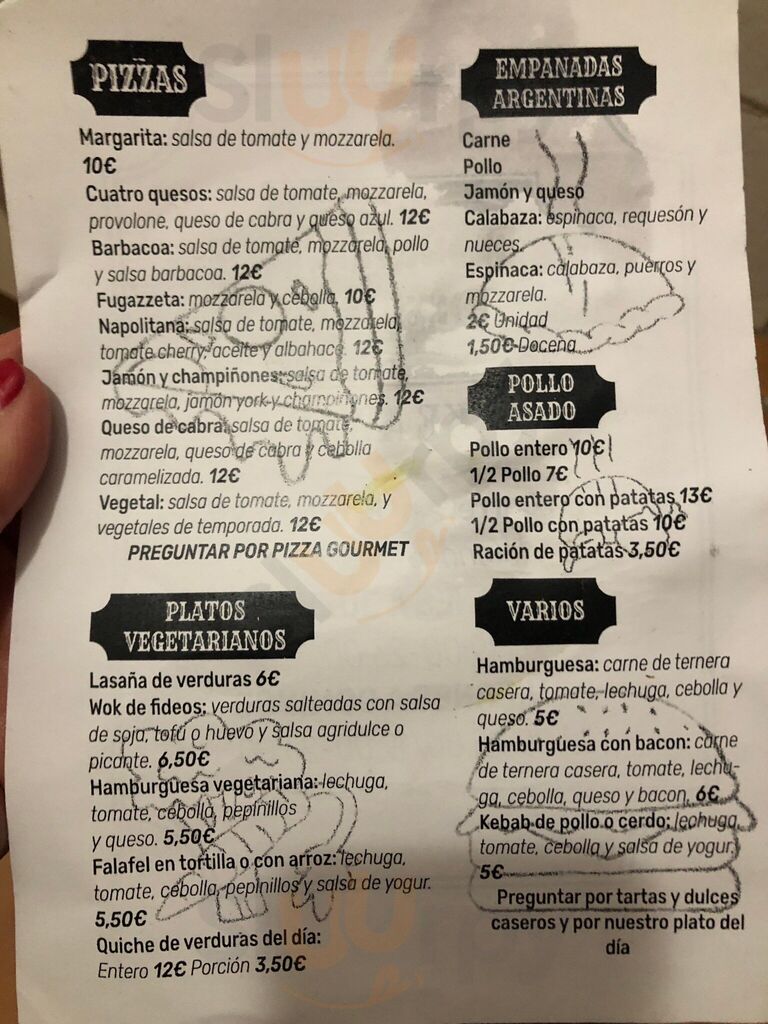 PIZZAS
Margarita: salsa de tomate y mozzarela.
10€
Cuatro quesos: salsa de tomate, mozzarela,
provolone, queso de cabra y queso azul. 12€
Barbacoa: salsa de tomate, mozzarela, pollo
y salsa barbacoa. 12€
Fugazzeta: mozzarela y cebolla. 10€
Napolitana: salsa de tomate, mozzarela,
tomate cherry, aceite y albahaca. 12€
Jamón y champiñones: salsa de tomate,
mozzarela, jamón york y champiñones. 12€
Queso de cabra: salsa de tomate,
mozzarela, queso de cabra y cebolla
caramelizada. 12€
Vegetal: salsa de tomate, mozzarela, y
vegetales de temporada. 12€
PREGUNTAR POR PIZZA GOURMET
PLATOS
VEGETARIANOS
Lasaña de verduras 6€
Wok de fideos: verduras salteadas con salsa
de soja, tofú o huevo y salsa agridulce o
picante. 6,50€
Hamburguesa vegetariana: lechuga,
tomate, cebolla, pepinillos
y queso. 5,50€
Falafel en tortilla o con arroz: lechuga,
tomate, cebolla, pepinillos y salsa de yogur.
5,50€
Quiche de verduras del día:
Entero 12€ Porción 3,50€
EMPANADAS
ARGENTINAS
Carne
Pollo
Jamón y queso
Calabaza: espinaca, requesón y
nueces.
Espinaca: calabaza, puerros y
mozzarela.
2€ Unidad
1,50€ Docena
POLLO
ASADO
Pollo entero 10€
1/2 Pollo 7€
Pollo entero con patatas 13€
1/2 Pollo con patatas 10€
Ración de patatas 3,50€
VARIOS
Hamburguesa: carne de ternera
casera, tomate, lechuga, cebolla y
queso. 5€
Hamburguesa con bacon: carne
de ternera casera, tomate, lechu-
ga, cebolla, queso y bacon, 6€
Kebab de pollo o cerdo: lechuga,
tomate, cebolla y salsa de yogur,
5€
Preguntar por tartas y dulces
caseros y por nuestro plato del
día